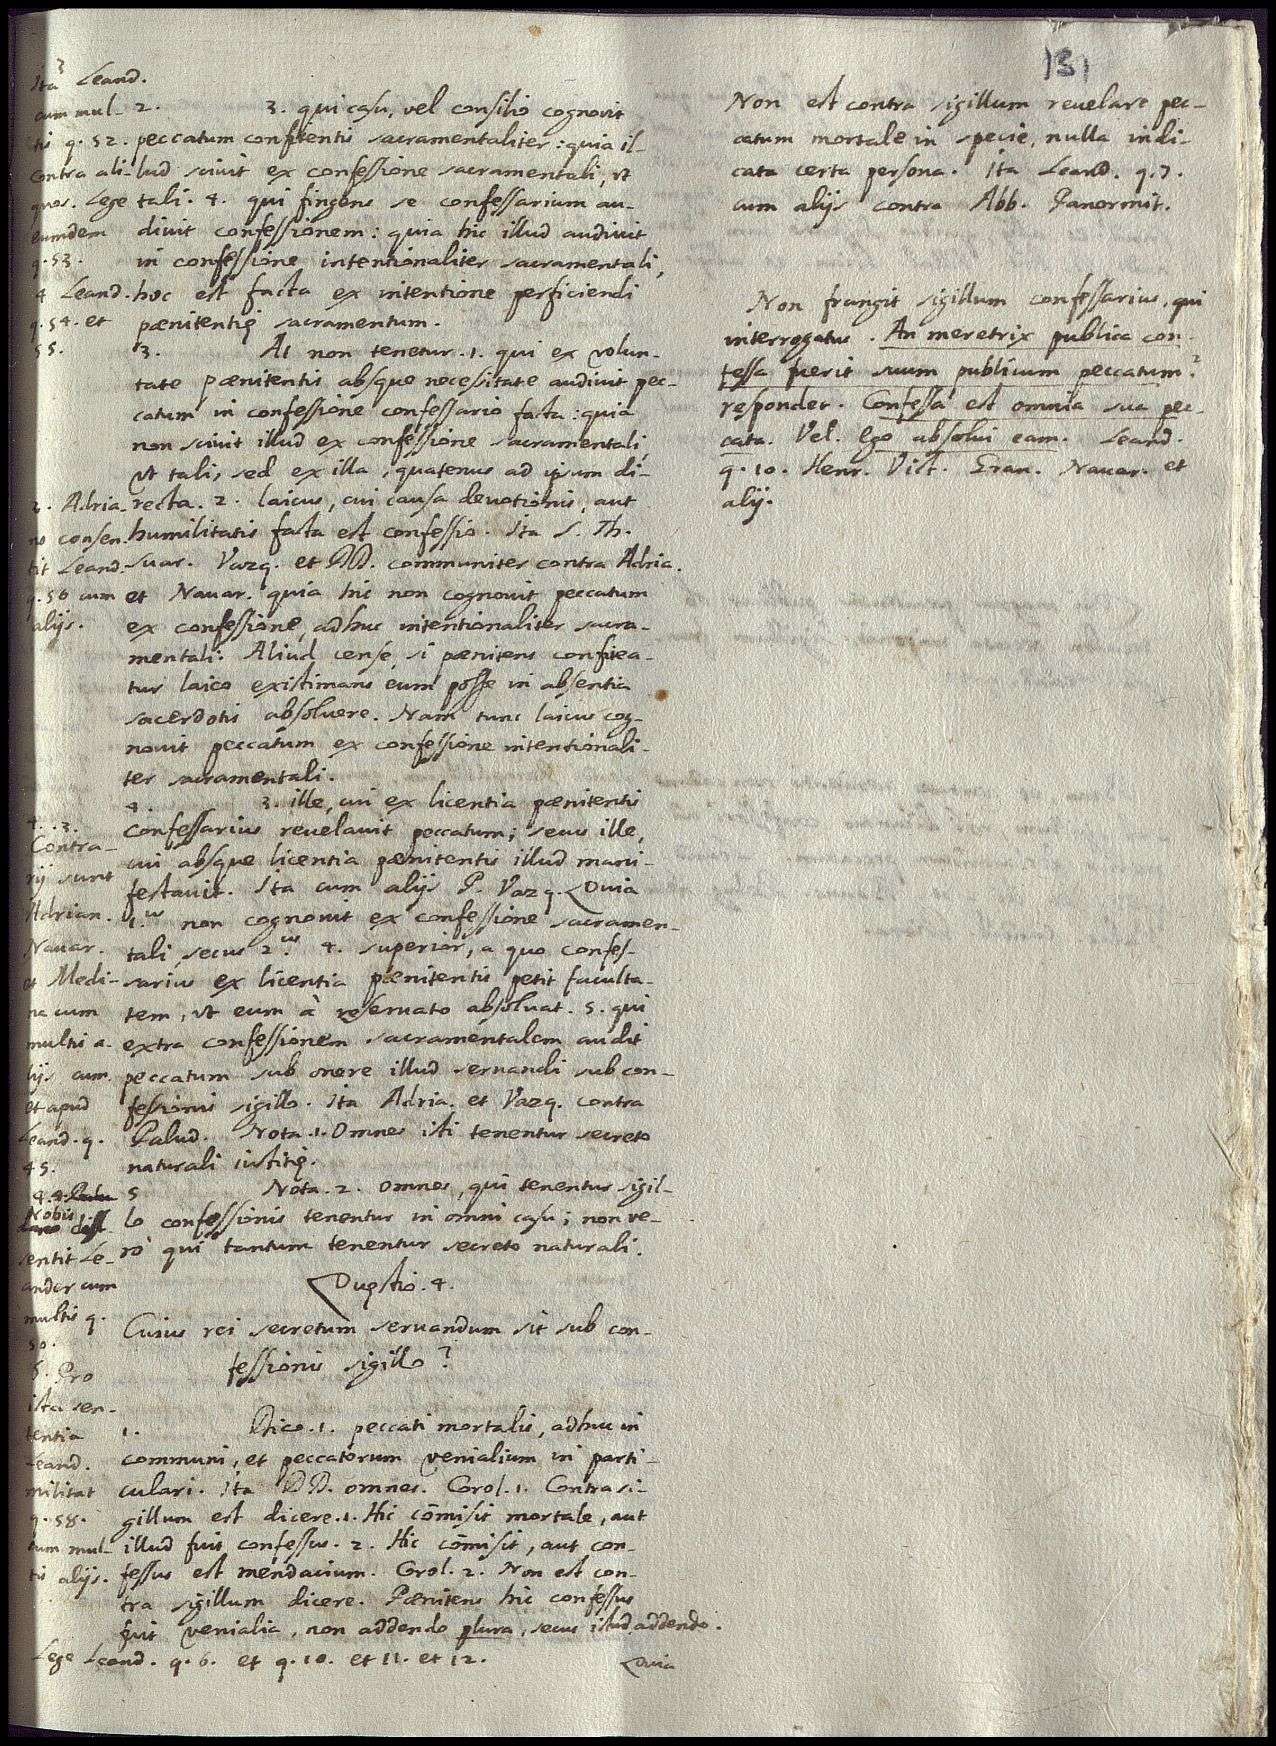 131
Ita Leand.
cum mul-
tis q. 52.
Contra ali-
quos. Lege
eumdem
q. 53.
4 Leand.
q. 54. et
55.
2. 3. qui casu, vel consilio cognovit
peccatum confitentis sacramentaliter: quia il-
lud scivit ex confessione sacramentali, ut
tali. 4. qui fingens se confessarium au-
divit confessionem: quia hic illud audivit
in confessione intentionaliter sacramentali,
hoc est facta ex intentione perficiendi
pænitentię sacramentum.
3. At non tenetur. 1. qui ex volun-
tate pænitentis absque necessitate audivit pec-
catum in confessione confessario facta: quia
non scivit illud ex confessione sacramentali,
ut tali, sed ex illa, quatenus ad ipsum di-
recta. 2. laicus, cui causa devotionis, aut
humilitatis facta est confessio. Ita S. Th.
Suar. Vazq. et DD. communiter contra Adria.
et Navar. quia hic non cognovit peccatum
ex confessione, adhuc intentionaliter sacra-
mentali. Aliud cense, si pænitens confitea-
tur laico existimans eum posse in absentia
sacerdotis absolvere. Nam tunc laicus cog-
novit peccatum ex confessione intentionali-
ter sacramentali.
2. Adria-
no consen-
tit Leand.
q. 56 cum
alijs.
4. 3. ille, cui ex licentia pænitentis
Confessarius revelavit peccatum; secus ille,
cui absque licentia pænitentis illud mani-
festavit. Ita cum alijs P. Vazq. Quia
1.us non cognovit ex confessione sacramen-
tali, secus 2.us. 4. superior, a quo confes-
sarius ex licentia pænitentis petit faculta-
tem, ut eum à reservato absolvat. 5. qui
extra confessionem sacramentalem audit
peccatum sub onere illud servandi sub con-
fessionis sigillo. Ita Adria. et Vazq. contra
Palud. Nota. 1. Omnes isti tenentur secreto
naturali iustitię.
4. 3.
Contra-
rij sunt
Adrian.
Navar.
et Medi-
na cum
multis a-
lijs cum
et apud
Leand. q.
45.
5 Nota. 2. omnes, qui tenentur sigil-
lo confessionis tenentur in omni casu; non ve-
rò qui tantum tenentur secreto naturali.
4.
Nobis
sentit Le-
ander cum
multis q.
50.
Quęstio. 4.
Cuius rei secretum servandum sit sub con-
fessionis sigillo?
5. Pro
ista sen-
tentia
Leand.
militat
q. 58.
cum mul-
tis alijs.
1. Dico. 1. peccati mortalis, adhuc in
communi, et peccatorum venialium in parti-
culari. Ita DD. omnes. Corol. 1. Contra si-
gillum est dicere. 1. Hic cōmisit mortale, aut
illud fuit confessus. 2. Hic cōmisit, aut con-
fessus est mendacium. Corol. 2. Non est con-
tra sigillum dicere. Pænitens hic confessus
fuit venialia, non addendo plura, secus istud addendo.
Lege Leand. q. 6. et q. 10. et 11. et 12.
Quia
Non est contra sigillum revelare pec-
catum mortale in specie, nulla indi-
cata certa persona. Ita Leand. q. 7.
cum alijs contra Abb. Panormit.
Non frangit sigillum confessarius, qui
interrogatus. An meretrix publica con-
fessa fuerit suum publicum peccatum?
responder. Confessa est omnia sua pec-
cata. Vel. Ego absolvi eam. Leand.
q. 10. Henr. Vict. Gran. Navar. et
alij.